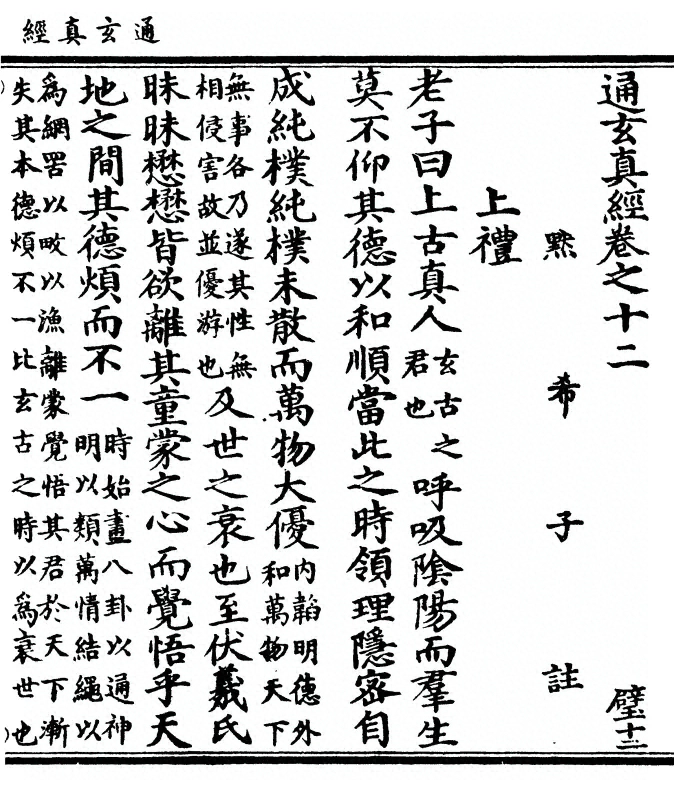 通玄真經
通玄真經卷之十二
璧十二
默希子註
上禮
老子曰上古真人玄古之君也呼吸陰陽而羣生
莫不仰其德以和順當此之時領理隱密自
成純樸純樸未散而萬物大優內韜明德外和萬物天下
無事各乃遂其性無相侵害故並優游也及世之衰也至伏羲氏
昧昧懋懋皆欲離其童蒙之心而覺悟乎天
地之間其德煩而不一時始畫八卦以通神明以類萬情結繩以
為網罟以畋以漁離蒙覺悟其君於天下漸失其本德煩不一比玄古之時以為衰世也